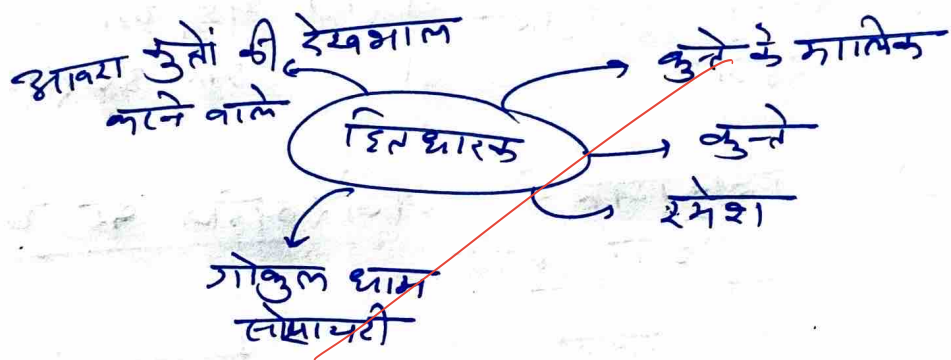 आवरा कुत्तों की देखभाल
करने वाले
हितधारक
कुत्ते के मालिक
कुत्ते
रमेश
गोकुल धाम
सोसायटी